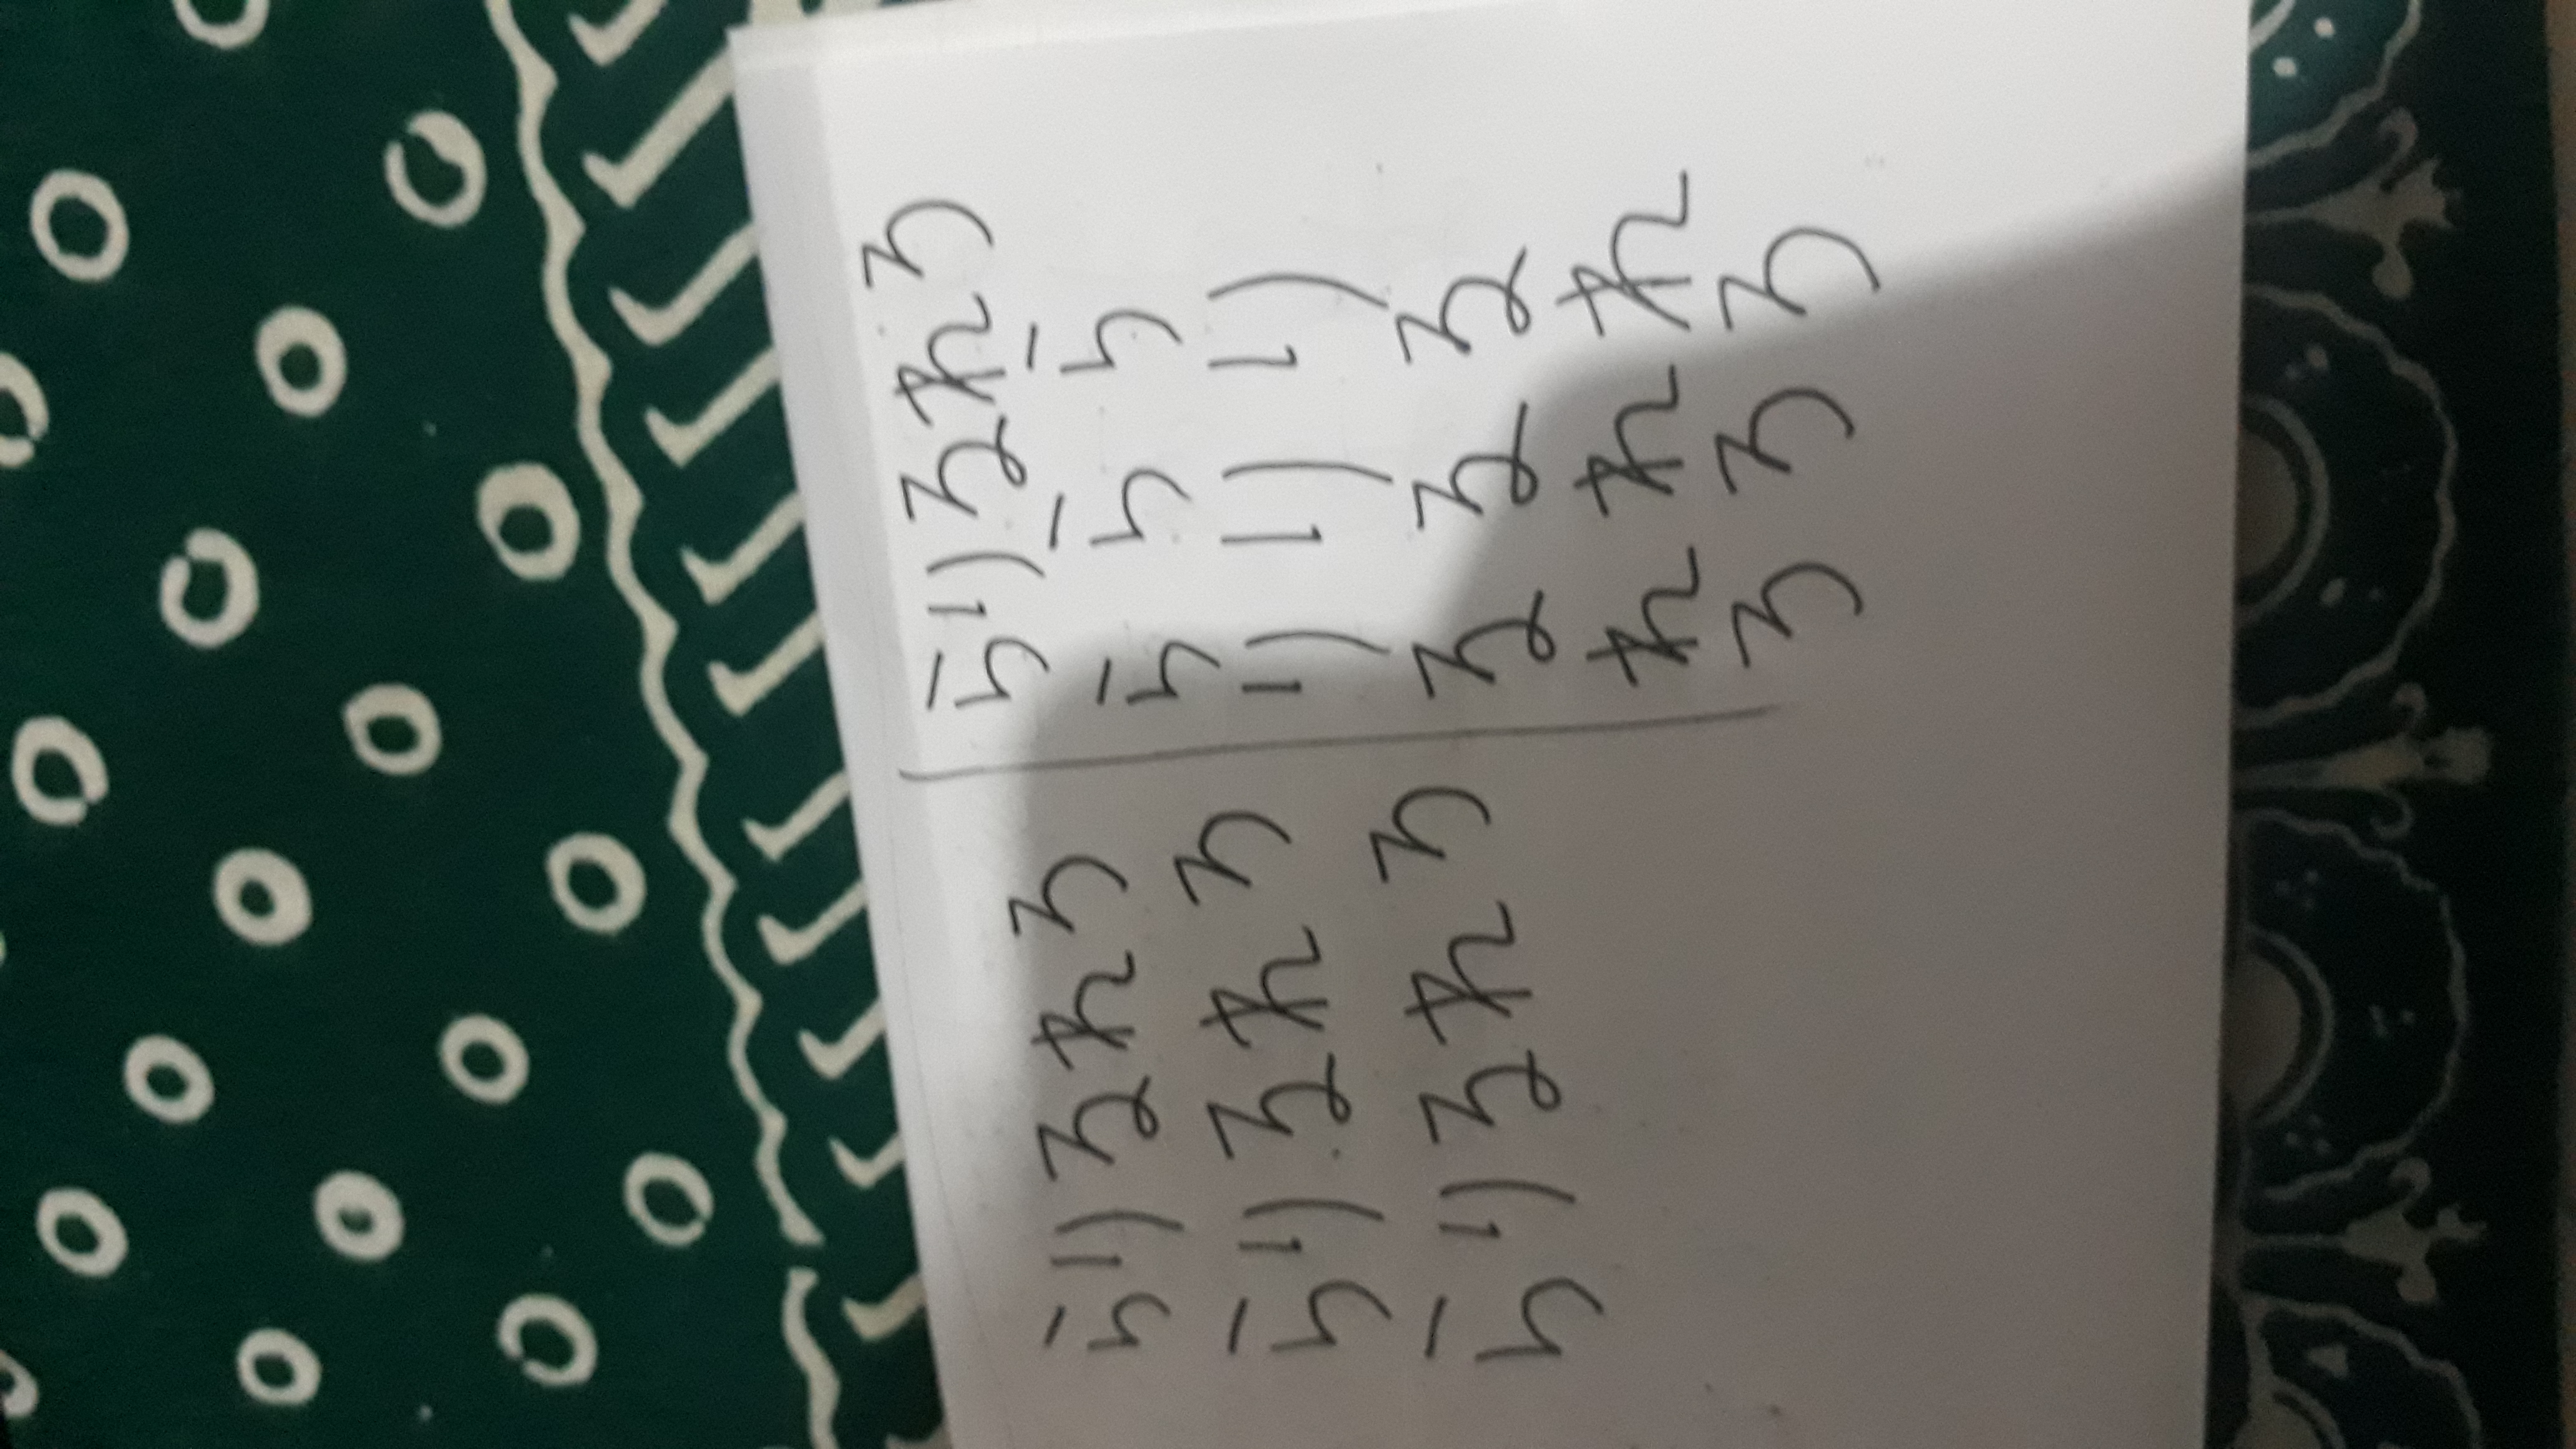 らりるれろ
らりるれろ
らりるれろ
らりるれろ
らららら
りりり
るるる
れれれ
ろろろ